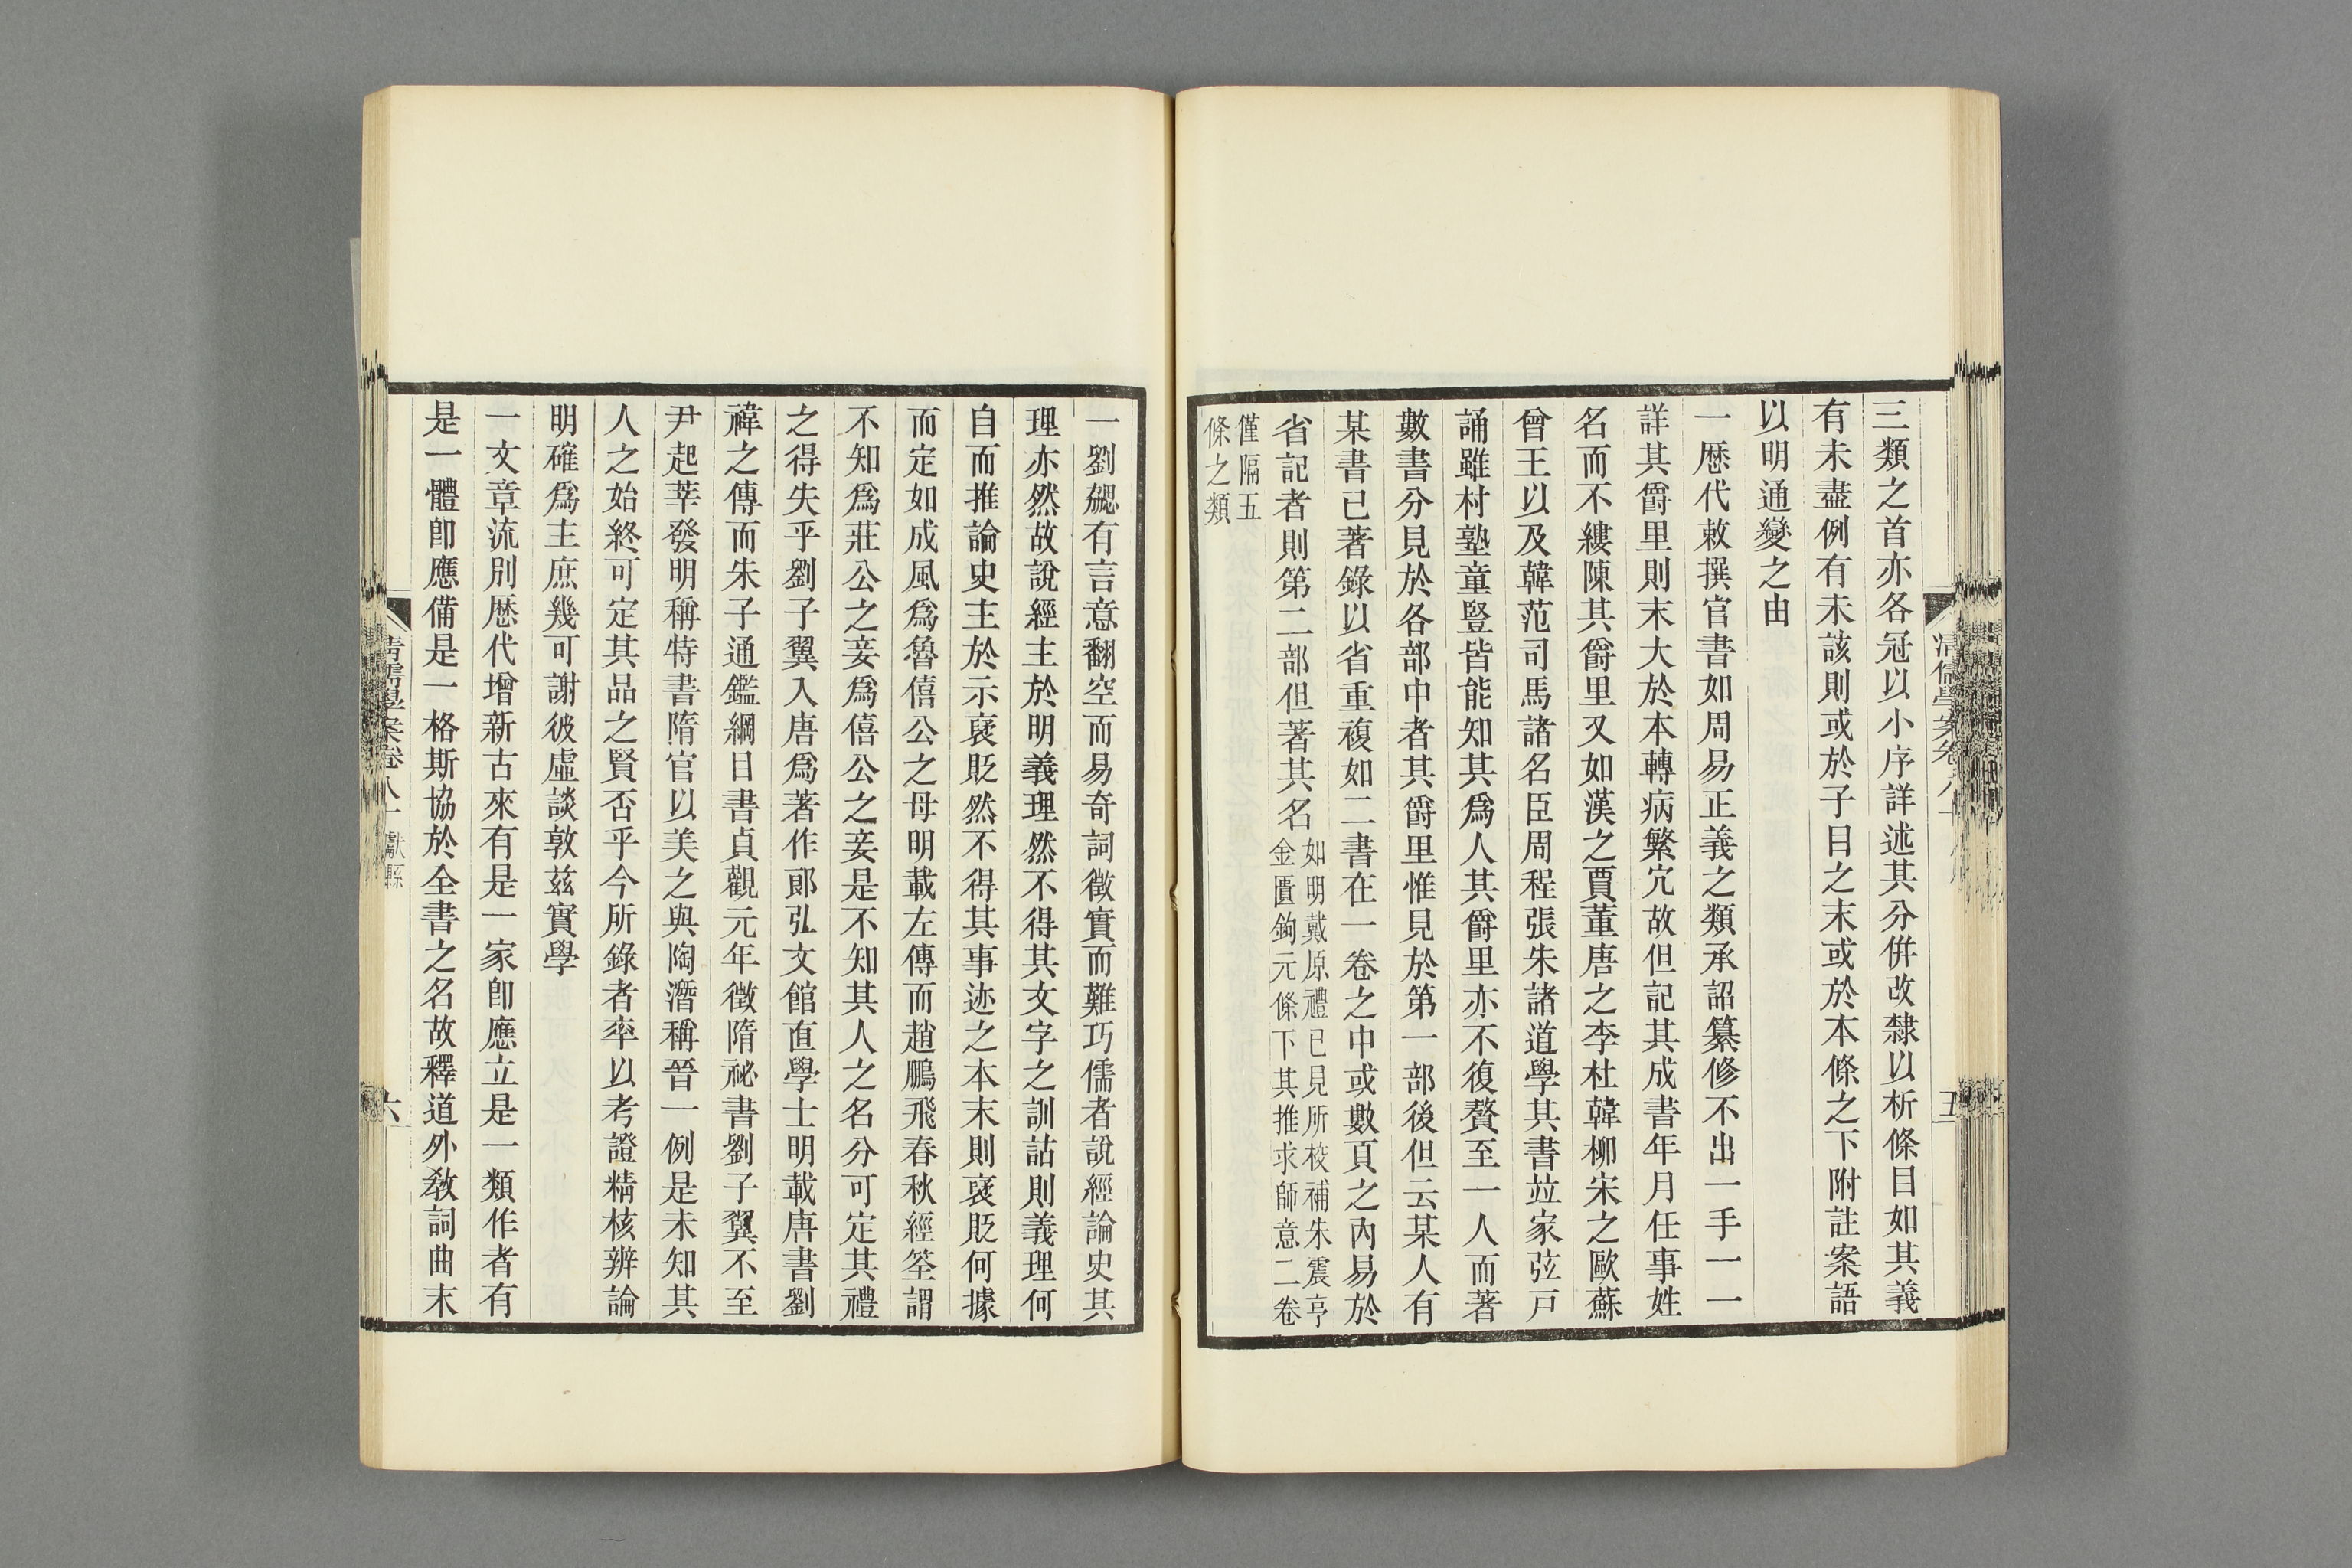 三類之首亦各冠以小序詳述其分併改隸以析條目如其義
有未盡例有未該則或於子目之末或於本條之下附註案語
以明通變之由
一歴代敕撰官書如周易正義之類承詔纂修不出一手一一
詳其爵里則末大於本轉病繁宂故但記其成書年月任事姓
名而不縷陳其爵里又如漢之賈董唐之李杜韓柳宋之歐蘇
曾王以及韓范司馬諸名臣周程張朱諸道學其書竝家弦戸
誦雖村塾童豎皆能知其爲人其爵里亦不復贅至一人而著
數書分見於各部中者其爵里惟見於第一部後但云某人有
某書已著錄以省重複如二書在一卷之中或數頁之內易於
省記者則第二部但著其名如明戴原禮已見所校補朱震亨
金匱鉤元條下其推求師意二卷
僅隔五
條之類
一劉勰有言意翻空而易奇詞徵實而難巧儒者說經論史其
理亦然故說經主於明義理然不得其文字之訓詁則義理何
自而推論史主於示襃貶然不得其事迹之本末則襃貶何據
而定如成風爲魯僖公之母明載左傳而趙鵬飛春秋經筌謂
不知爲莊公之妾爲僖公之妾是不知其人之名分可定其禮
之得失乎劉子翼入唐爲著作郎弘文館直學士明載唐書劉
禕之傳而朱子通鑑綱目書貞觀元年徵隋祕書劉子翼不至
尹起莘發明稱特書隋官以美之與陶潛稱晉一例是未知其
人之始終可定其品之賢否乎今所錄者率以考證精核辨論
明確爲主庶幾可謝彼虛談敦茲實學
一文章流別歴代增新古來有是一家卽應立是一類作者有
是一體卽應備是一格斯協於全書之名故釋道外敎詞曲末
清儒學案卷八十 獻縣
六